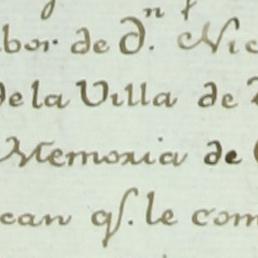 bor. de d.n Nic
de la Villa de
Memoria de
can qs. le com